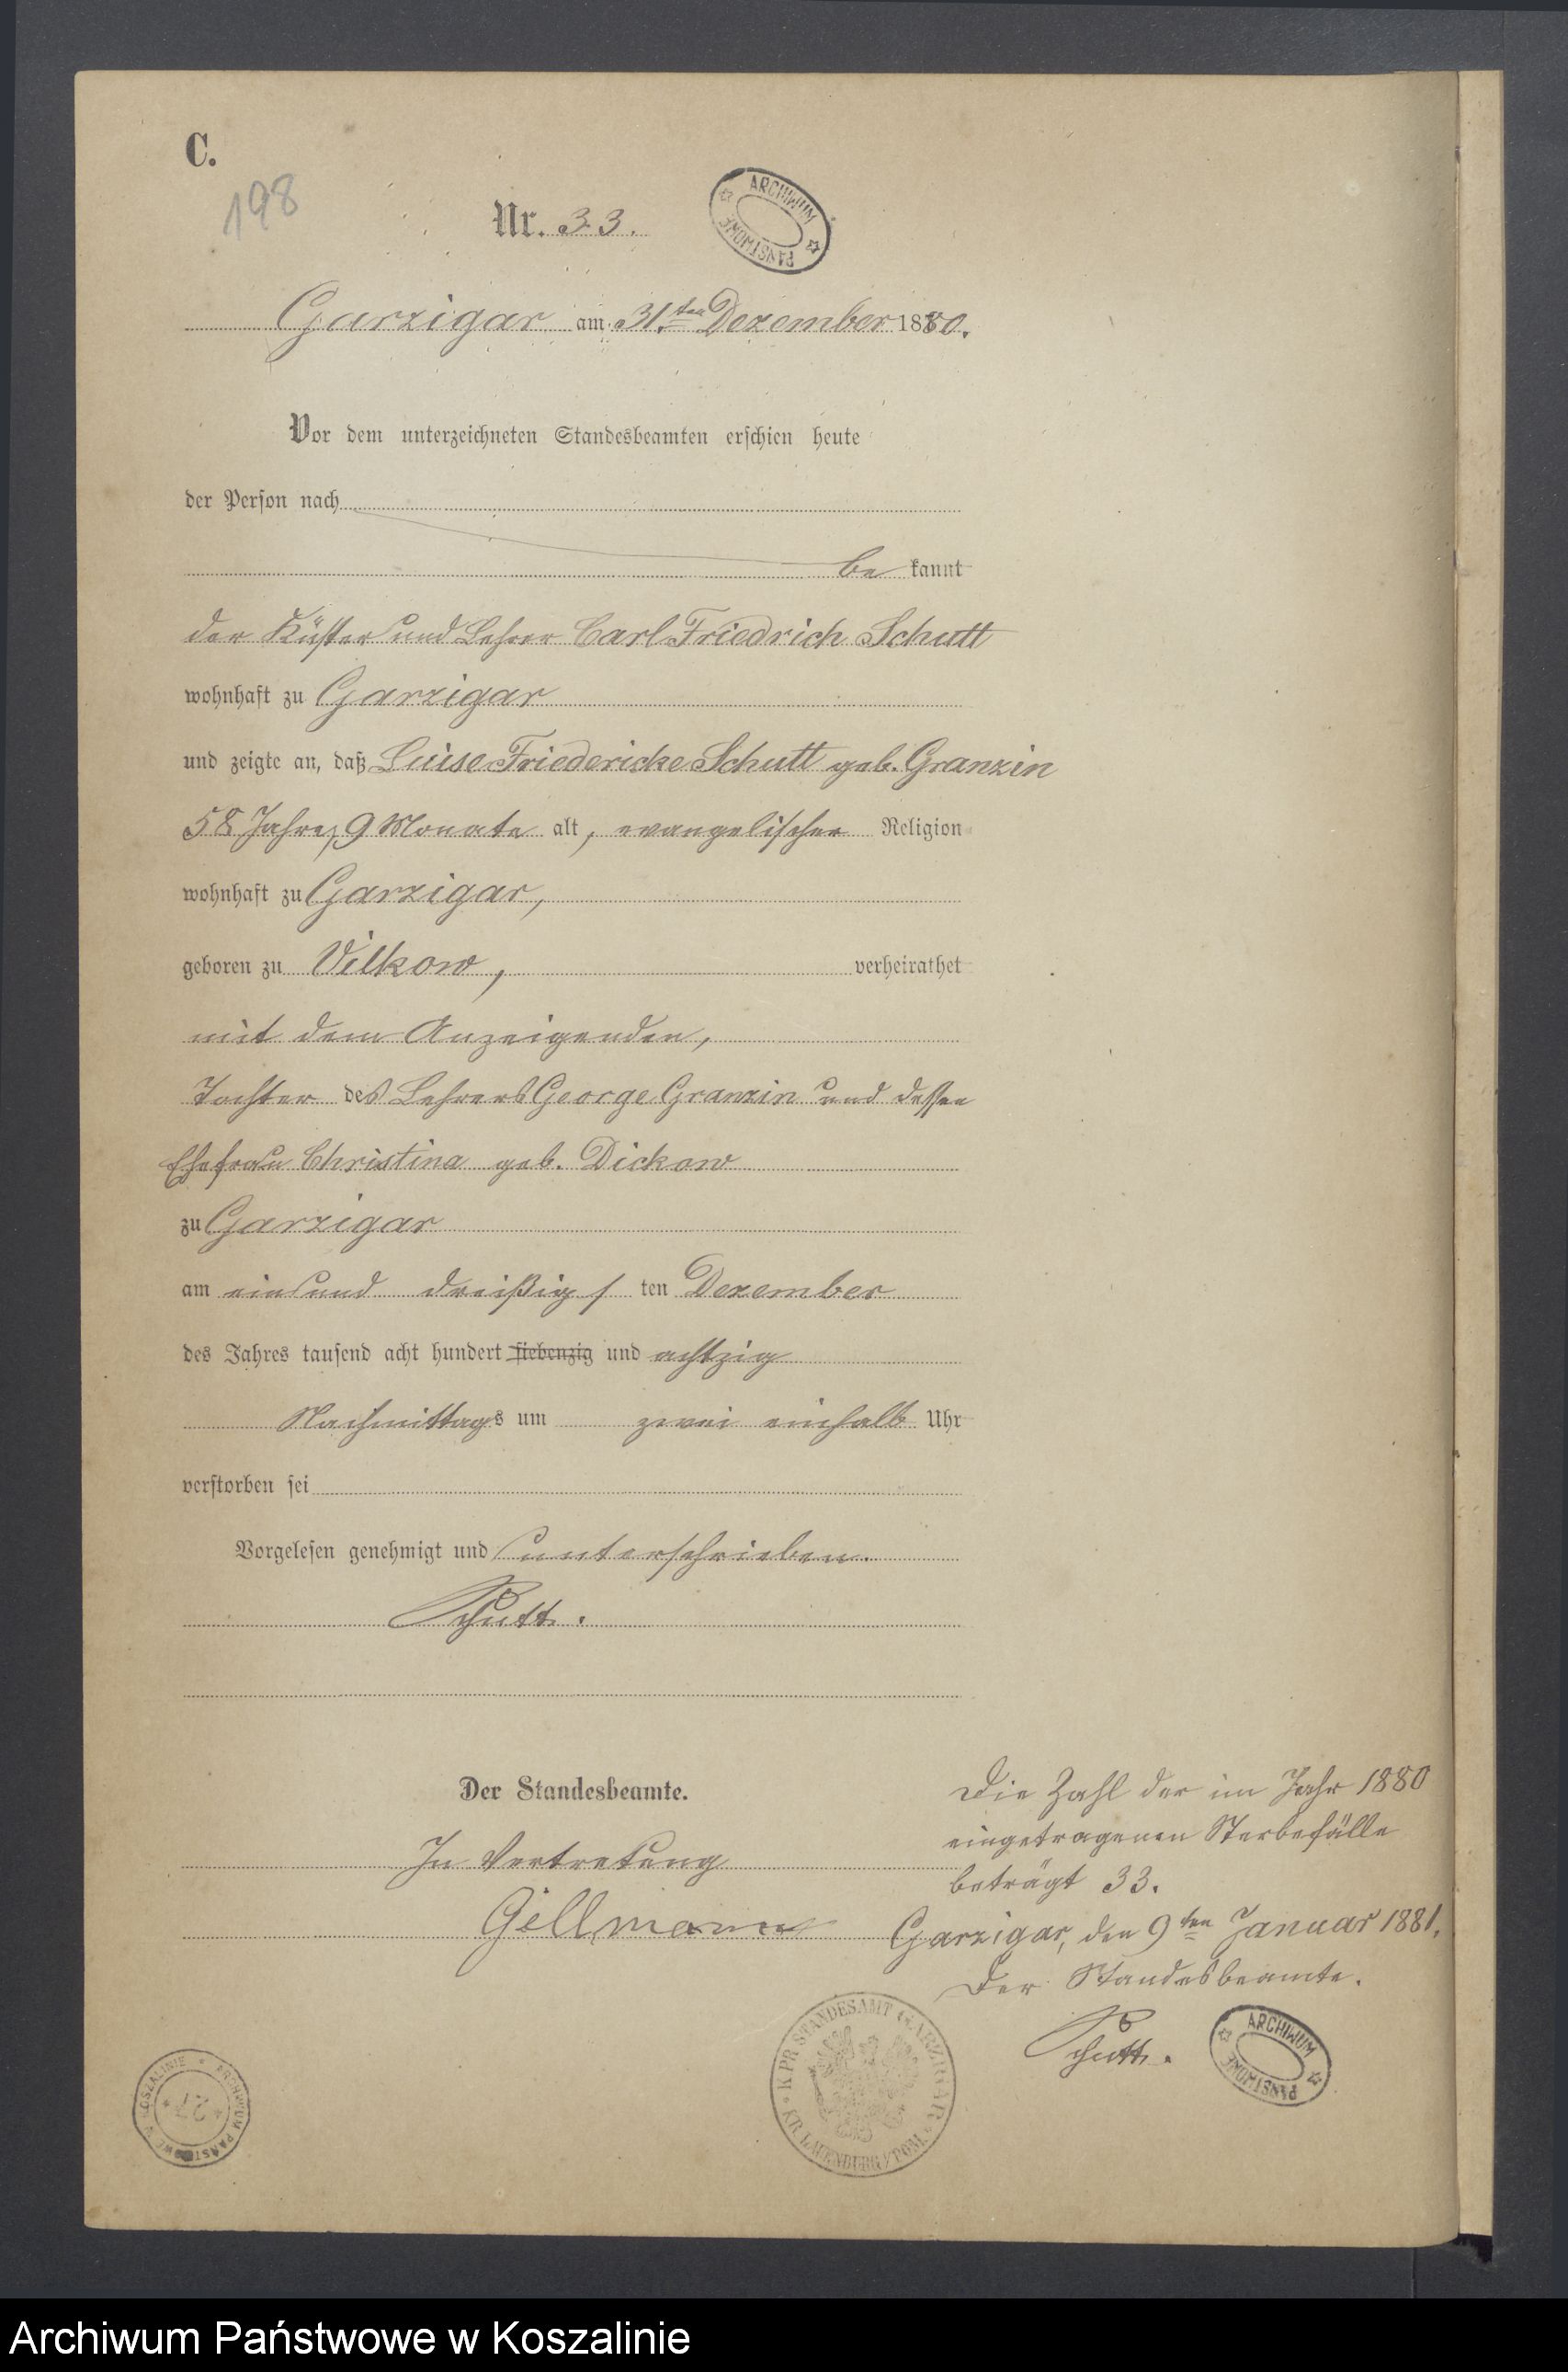 C.
198
Nr. 33.
ARCHIWUM PAŃSTWOWE
Garzigar am 31.ten Dezember 1880.
Vor dem unterzeichneten Standesbeamten erschien heute
der Person nach
be kannt
der Küster und Lehrer Carl Friedrich Schutt
wohnhaft zu Garzigar
und zeigte an, daß Luise Friedericke Schutt geb. Granzin
58 Jahre, 9 Monate alt, evangelischer Religion
wohnhaft zu Garzigar,
geboren zu Vilkow, verheirathet
mit dem Anzeigenden,
Tochter des Lehrers George Granzin und dessen
Ehefrau Christina geb. Dickow
zu Garzigar
am ein und dreißigs ten Dezember
des Jahres tausend acht hundert siebenzig und achtzig
Nachmittags um zwei einhalb Uhr
verstorben sei
Vorgelesen genehmigt und unterschrieben.
Schutt.
Der Standesbeamte.
In Vertretung
Gellmann
Die Zahl der im Jahr 1880
eingetragenen Sterbefälle
beträgt 33.
Garzigar, den 9ten Januar 1881.
Der Standesbeamte.
Schutt.
K. PR. STANDESAMT GARZIGAR
KR. LAUENBURG I/POM.
ARCHIWUM PAŃSTWOWE
ARCHIWUM PAŃSTWOWE W KOSZALINIE
27
Archiwum Państwowe w Koszalinie